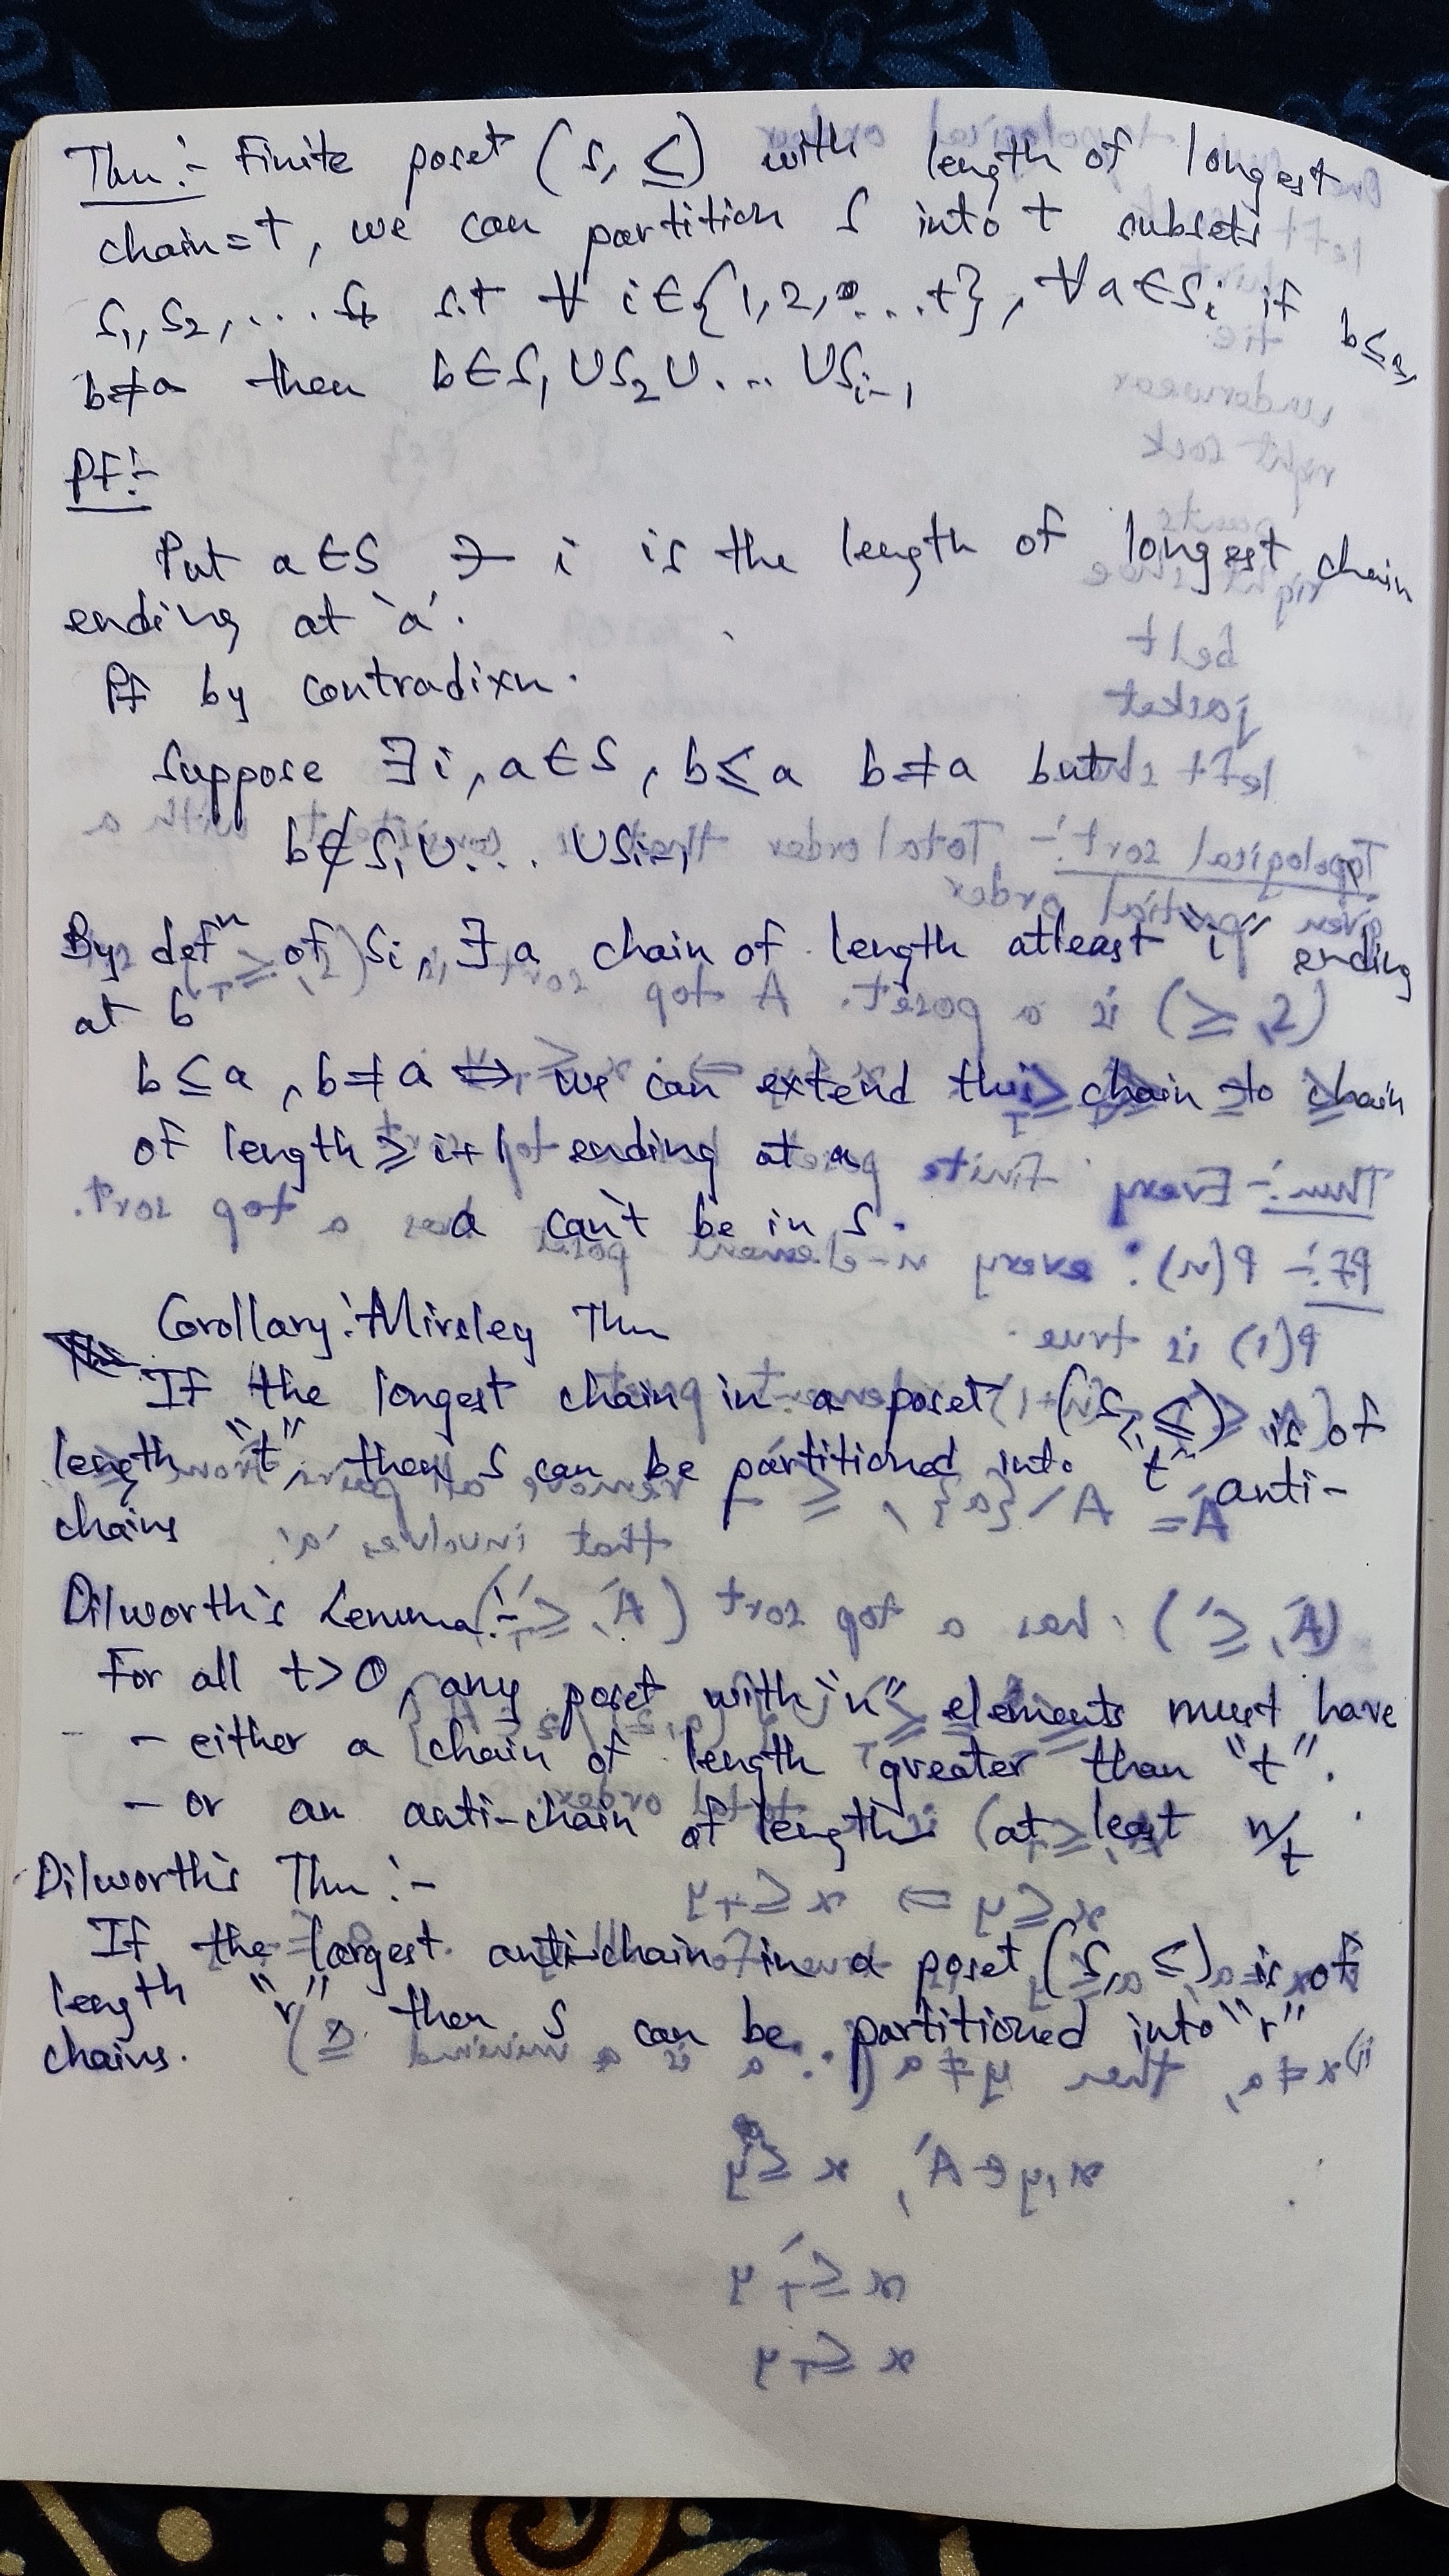 Thm:- Finite poset (S, ≤) with length of longest
chain = t, we can partition S into t subsets
S₁, S₂, ... St s.t ∀ i ∈ {1, 2, ... t}, ∀ a ∈ Si if b ≤ a,
b ≠ a then b ∈ S₁ ∪ S₂ ∪ ... ∪ Si-1
Pf:-
Put a ∈ S ∋ i is the length of longest chain
ending at 'a'.
Pf by contradixn.
Suppose ∃ i, a ∈ S, b ≤ a b ≠ a but
b ∉ S₁ ∪ ... ∪ Si-1
By defⁿ of Si, ∃ a chain of length atleast "i" ending
at b
b ≤ a, b ≠ a ⇒ we can extend this chain to chain
of length ≥ i+1 ending at a
a can't be in S.
Corollary: Mirsley Thm
If the longest chain in a poset (S, ≤) is of
length "t", then S can be partitioned into "t" anti-
chains
Dilworth's Lemma:-
For all t > 0, any poset with "n" elements must have
- either a chain of length greater than "t".
- or an anti-chain of length at least n/t
Dilworth's Thm:-
If the largest anti-chain in a poset (S, ≤) is of
length "r" then S can be partitioned into "r"
chains.